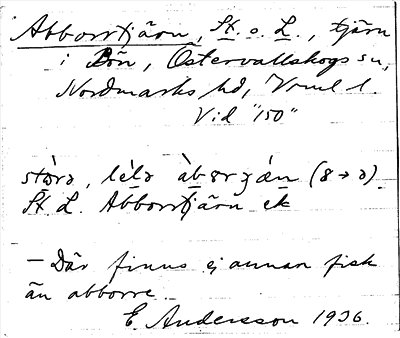 Abborrtjärn, St. o. L., tjärn
i Bön, Östervallskogs sn,
Nordmarks hd, Vrml l.
Vid "150"
stɷ̀rə, lèlə àbɷrçæn (8→ə)
St. L. Abborrtjärn ek
— Där finns ej annan fisk
än abborre
E. Andersson 1936.